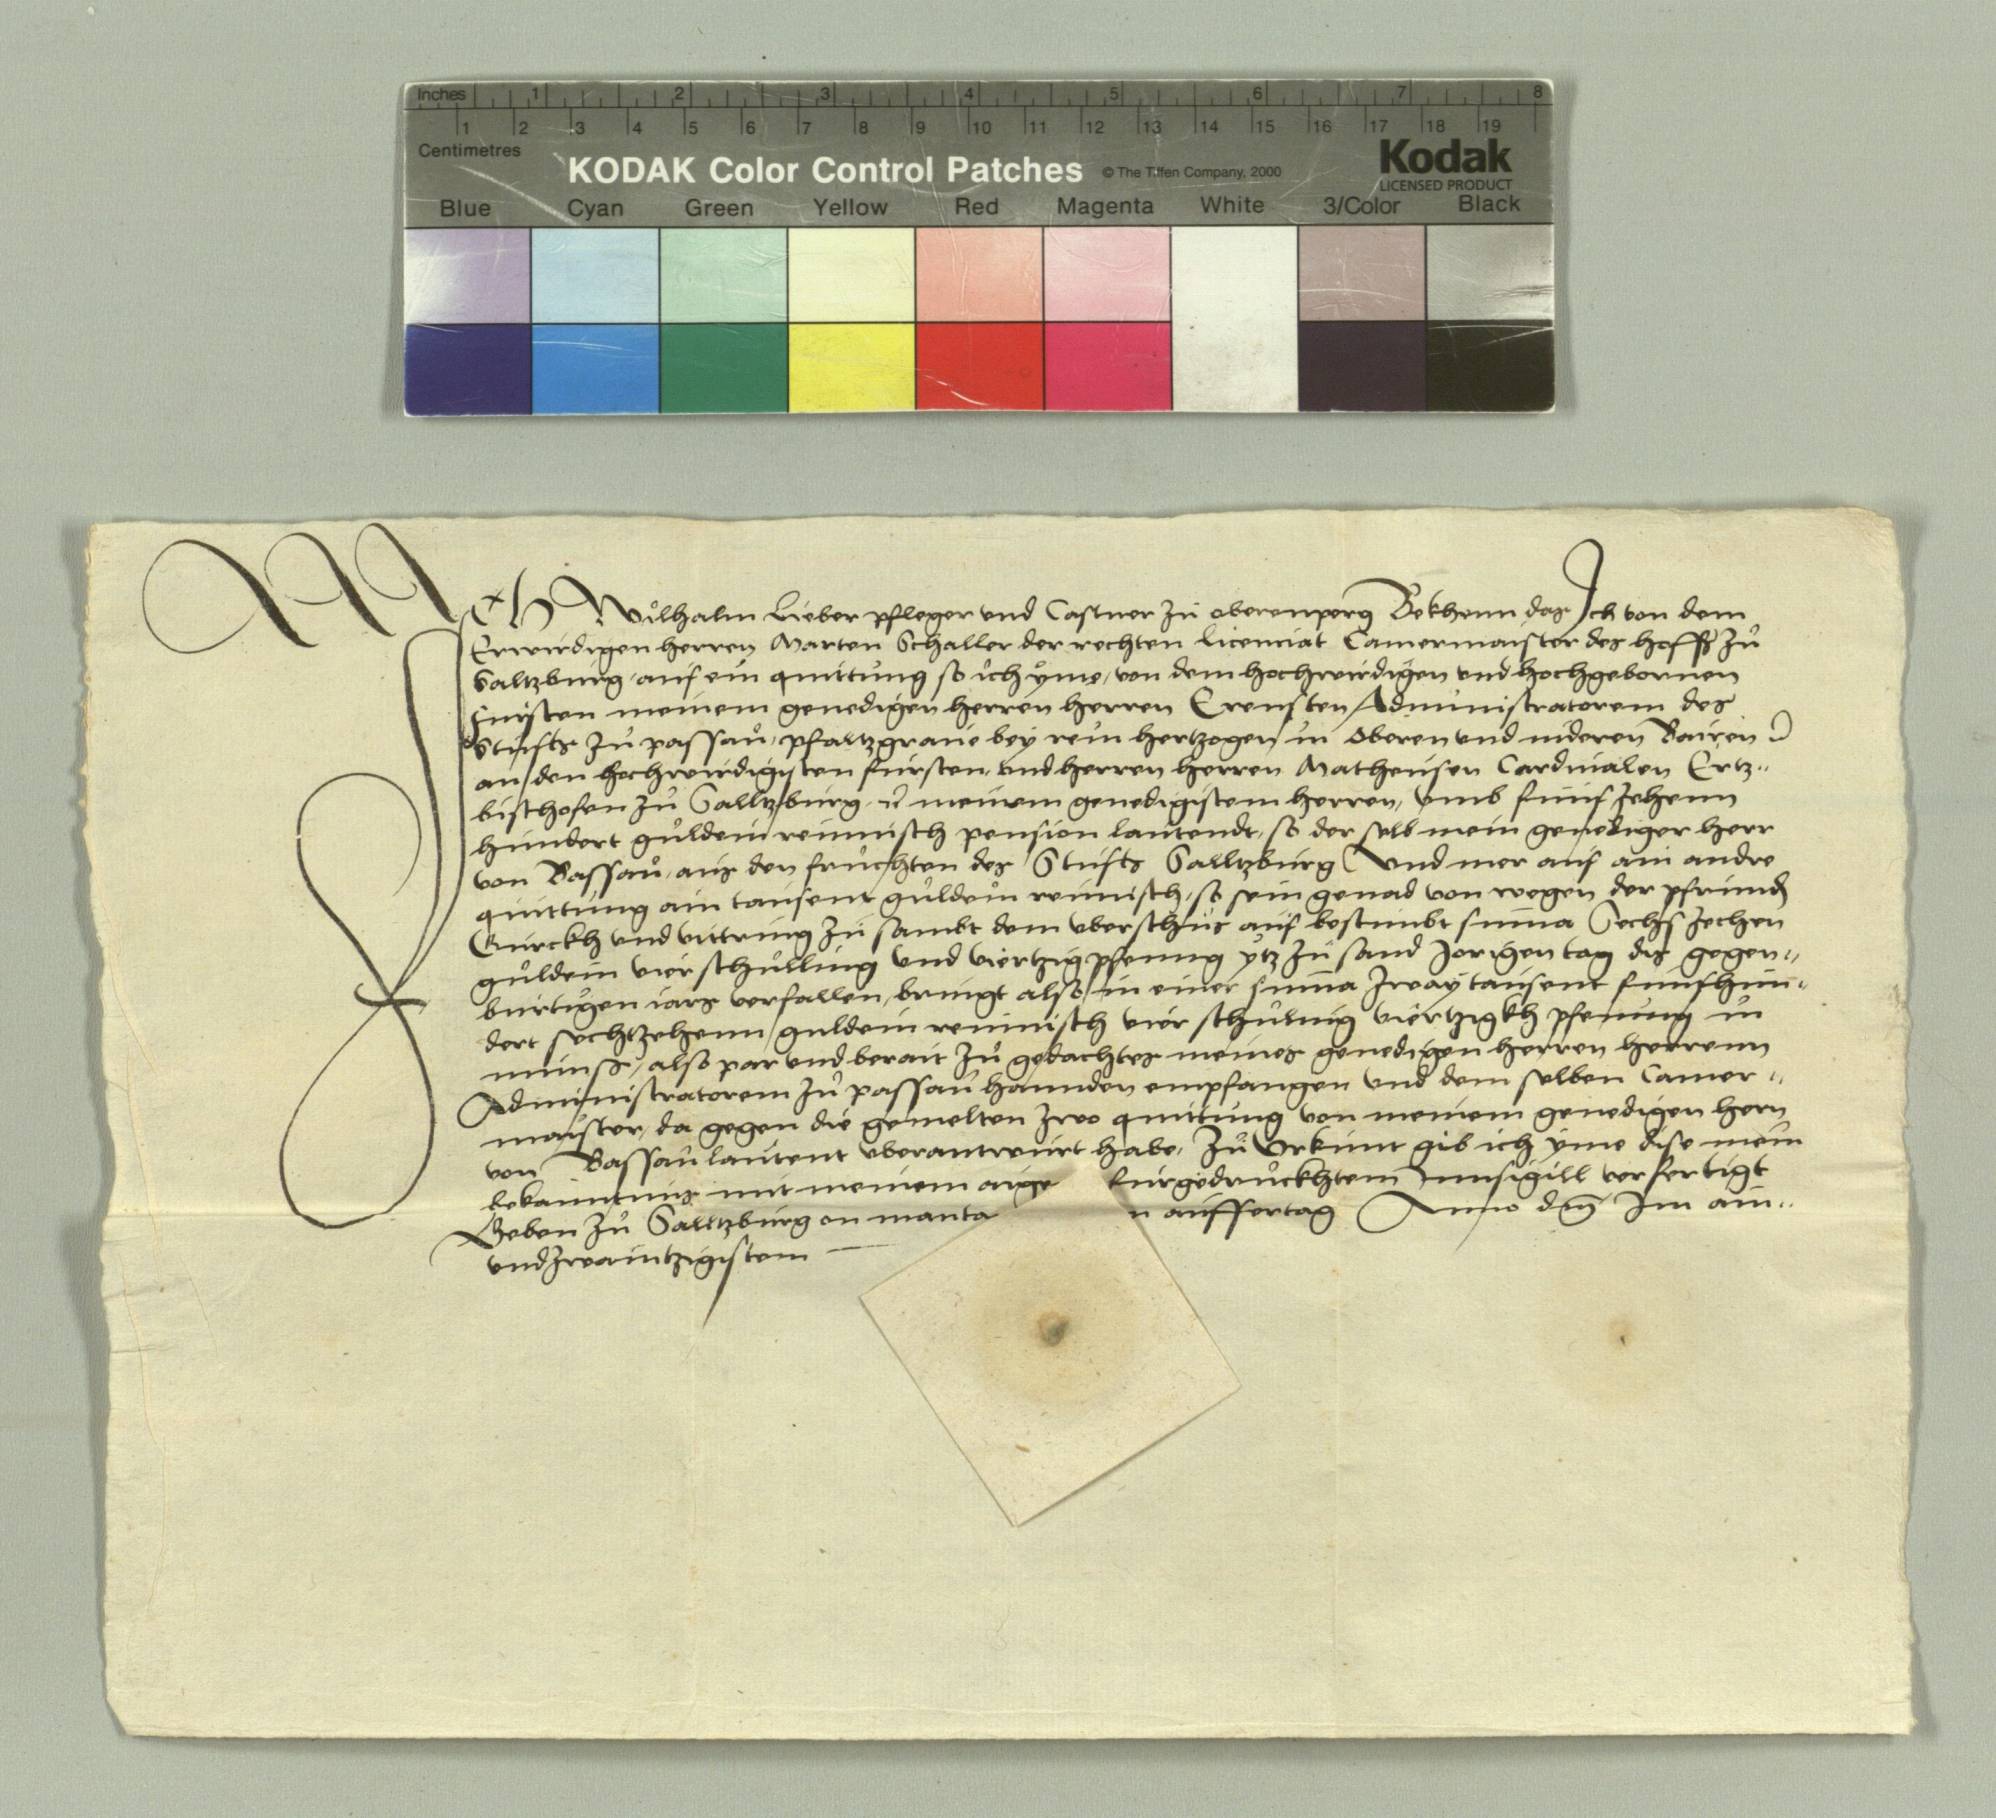 Inches 1 2 3 4 5 6 7 8
1 2 3 4 5 6 7 8 9 10 11 12 13 14 15 16 17 18 19
Centimetres
KODAK Color Control Patches © The Tiffen Company, 2000 Kodak
LICENSED PRODUCT
Blue Cyan Green Yellow Red Magenta White 3/Color Black
Ich Wilhalm Lieber pfleger und Castner zu oberenperg Bekhenn das Ich von dem
Erwirdigen herren Marten Schaller der rechten licenciat Camermaister des hoffs zů
Saltzburg auf ein quittung so ich yme von dem hochwirdigen und hochgebornen
fursten meinem genedigen herren herren Erensten Administratorem des
Stiffts zů passau pfaltzgrave bey rein hertzogen in Oberen und nideren Bairen
an den hochwirdigisten fursten und herren herren Matheusen Cardinalen Ertz=
bischofen zů Salltzburg meinem genedigistem herren, umb funf zehenn
hundert guldein reinnisch pension lautendt, so der selb mein genediger herr
von Bassau, aus den fruchten des Stifts Salltzburg Und mer auf ain andre
quittung ain tausent guldein reinnisch, so sein genad von wegen der pfrund
Gurckh und vittring zu sambt dem uberschus auf bestimbt suma Sechs zechen
guldein vier schulling und viertzig pfening ytz zu sand Jorigen tag dis gegen=
burtigen iars verfallen, bringt also in einer suma zway tausent funfhun=
dert sechtzehenn guldein reinnisch vier schulling viertzigkh pfening in
munss, also par und berait zů gedachtes meines genedigen herren herrenn
Administratorem zů passau hannden empfangen und dem selben Camer=
maister, da gegen die gemelten zwo quittung von meinem genedigen hern
von Bassau lautent uberantwurt habe, Zů Urkunt gib ich yme dise mein
bekanntnus mit meinem aige furgedruckhtem Innsigill verfertigt
Geben zů Salltzburg an manta n auffertag Anno dm̄ Im ain=
undzwaintzigistem